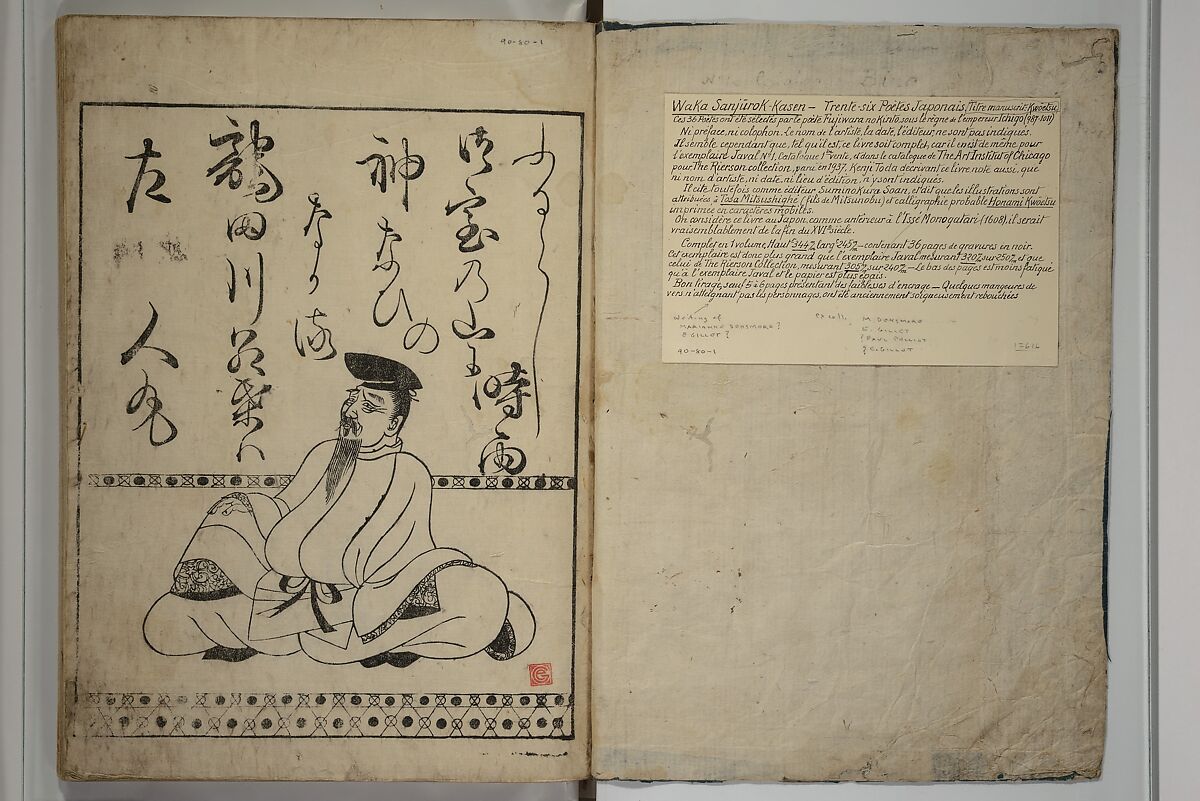 90-80-1
左 人丸
龍田川 葉ハ
なかる
神なひの
御室乃山に
時雨
ふるらし
Waka Sanjūrok-Kasen — Trente-six Poètes Japonais, Titre manuscrit Kwöetsu
Ces 36 Poètes ont été selectés par le poète Fujiwara no Kinto, sous le règne de l'empereur Ichigo (987-1011)
Ni preface, ni colophon. Le nom de l'artiste, la date, l'éditeur, ne sont pas indiqués.
Il semble cependant que, tel qu'il est, ce livre soit complet, car il en est de même pour
l'exemplaire Javal Nº1, Catalogue 1re vente, et dans le catalogue de The Art Institut of Chicago
pour The Rierson collection, paru en 1937, Kenji Toda décrivant ce livre note aussi, que
ni nom d'artiste, ni date, ni lieu d'édition, n'y sont indiqués.
Il cite toutefois comme éditeur Suminokura Soan, et dit que les illustrations sont
attribuées à Tosa Mitsushighe (fils de Mitsunobu) et calligraphie probable Honami Kwöetsu
imprimée en caractères mobiles.
On considère ce livre au Japon, comme antérieur à l'Issé Monogatari (1608), il serait
vraisemblablement de la fin du XVIe siècle.
Complet en 1 volume, Haut 344 larg 245 — contenant 36 pages de gravures en noir.
Cet exemplaire est donc plus grand que l'exemplaire Javal mesurant 320 sur 250 et que
celui de The Rierson Collection, mesurant 305 sur 240 — Le bas des pages est moins fatigué
qu'à l'exemplaire Javal et le papier est plus épais.
Bon tirage, sauf 5 à 6 pages présentant des faiblesses d'encrage — Quelques mangeures de
vers n'atteignant pas les personnages, ont été anciennement soigneusement rebouchées
Writing of
MARIANNE DENSMORE?
C GILLOT?
90-80-1
ex coll. M DENSMORE
C. GILLOT
?
? C. GILLOT